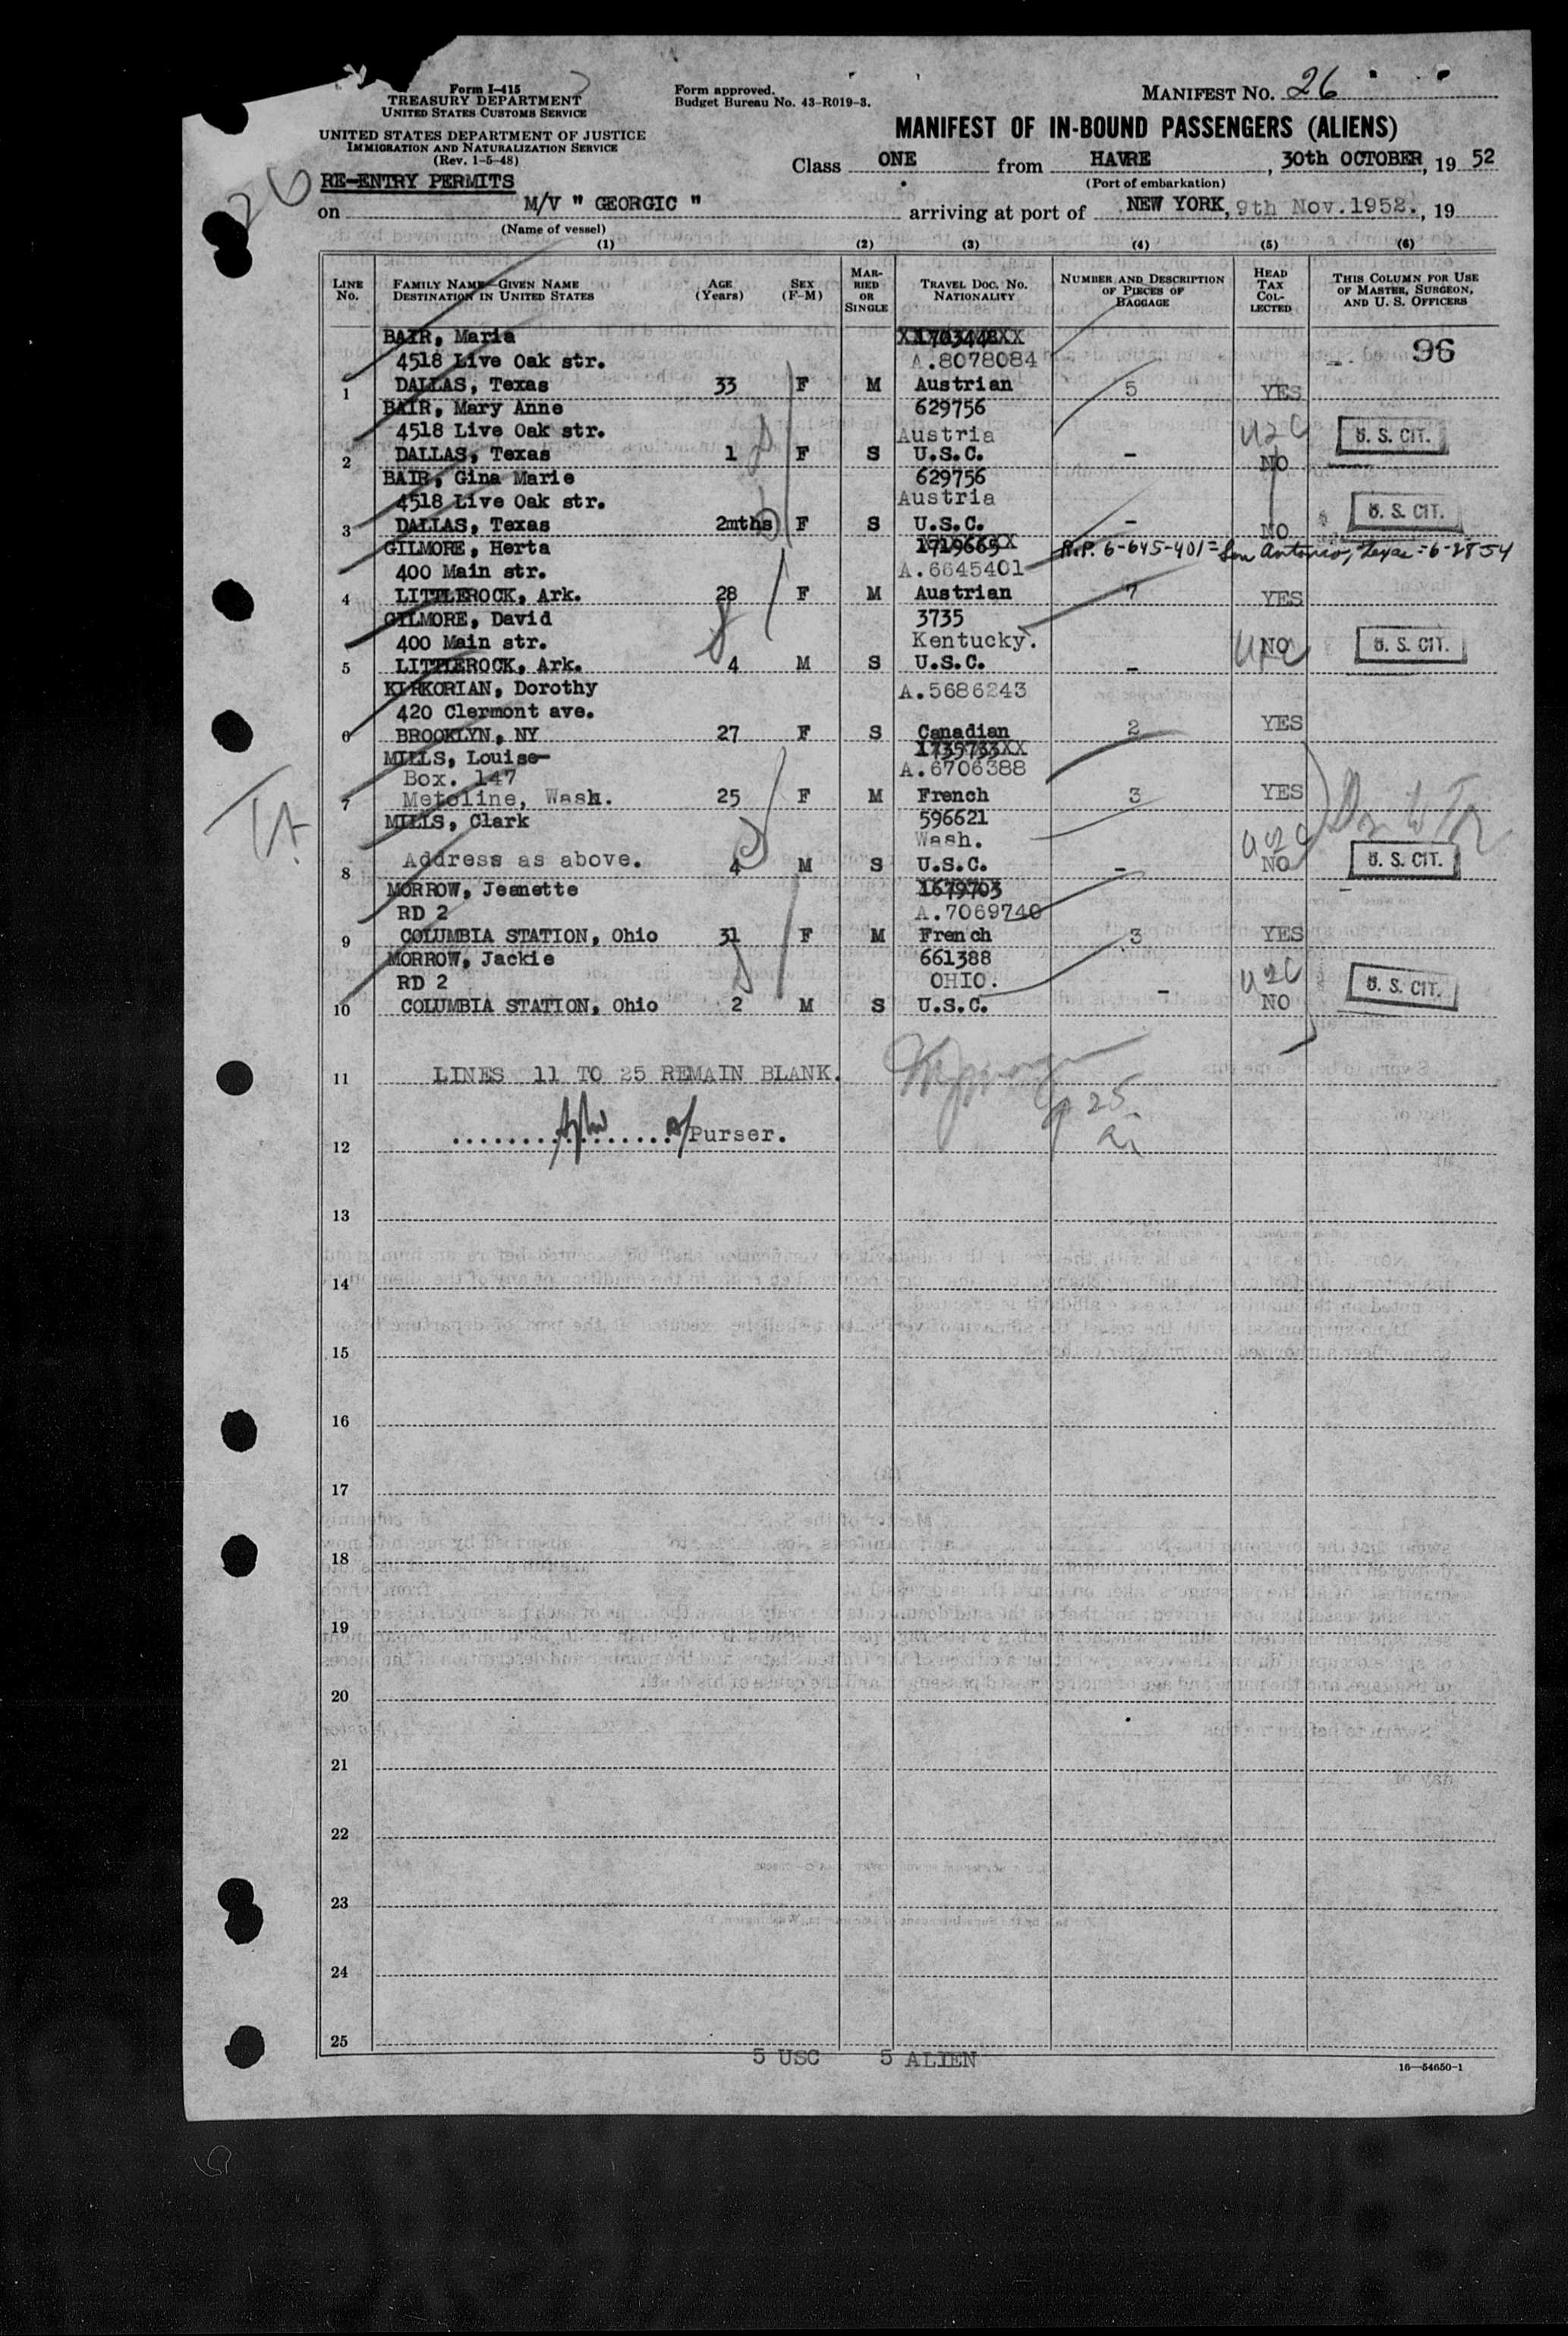 Form I-415
TREASURY DEPARTMENT
UNITED STATES CUSTOMS SERVICE
UNITED STATES DEPARTMENT OF JUSTICE
IMMIGRATION AND NATURALIZATION SERVICE
(Rev. 1-5-48)
Form approved.
Budget Bureau No. 43-R019-3.
MANIFEST NO. 26
MANIFEST OF IN-BOUND PASSENGERS (ALIENS)
26
Class ONE from HAVRE, 30th OCTOBER, 19 52
(Port of embarkation)
RE-ENTRY PERMITS
on M/V " GEORGIC " arriving at port of NEW YORK, 9th Nov.1952., 19
(Name of vessel)
(1) (2) (3) (4) (5) (6)
LINE No. FAMILY NAME—GIVEN NAME DESTINATION IN UNITED STATES AGE (Years) SEX (F-M) MARRIED OR SINGLE TRAVEL DOC. NO. NATIONALITY NUMBER AND DESCRIPTION OF PIECES OF BAGGAGE HEAD TAX COLLECTED THIS COLUMN FOR USE OF MASTER, SURGEON, AND U. S. OFFICERS
BAIR, Maria XX1703448XX
4518 Live Oak str. A.8078084 96
1 DALLAS, Texas 33 F M Austrian 5 YES
BAIR, Mary Anne 629756
4518 Live Oak str. Austria USC U. S. CIT.
2 DALLAS, Texas 1 F S U.S.C. - NO
BAIR, Gina Marie 629756
4518 Live Oak str. Austria U. S. CIT.
3 DALLAS, Texas 2mths F S U.S.C. - NO
GILMORE, Herta 1719665XX R.P. 6-645-401 = San Antonio, Texas = 6-28 54
400 Main str. A.6645401
4 LITTLEROCK, Ark. 28 F M Austrian 7 YES
GILMORE, David 3735
400 Main str. Kentucky. USC NO U. S. CIT.
5 LITTLEROCK, Ark. 4 M S U.S.C. -
KIRKORIAN, Dorothy A.5686243
420 Clermont ave.
6 BROOKLYN, NY 27 F S Canadian 2 YES
MILLS, Louise 1735733XX
Box. 147 A.6706388
7 Metoline, Wash. 25 F M French 3 YES
MILLS, Clark 596621
Wash. USC
8 Address as above. 4 M S U.S.C. - NO U. S. CIT.
MORROW, Jeanette 1679703
RD 2 A.7069740
9 COLUMBIA STATION, Ohio 31 F M French 3 YES
MORROW, Jackie 661388
RD 2 OHIO. USC U. S. CIT.
10 COLUMBIA STATION, Ohio 2 M S U.S.C. - NO
11 LINES 11 TO 25 REMAIN BLANK.
25
12 Purser.
13
14
15
16
17
18
19
20
21
22
23
24
25
5 USC 5 ALIEN
16—54650-1